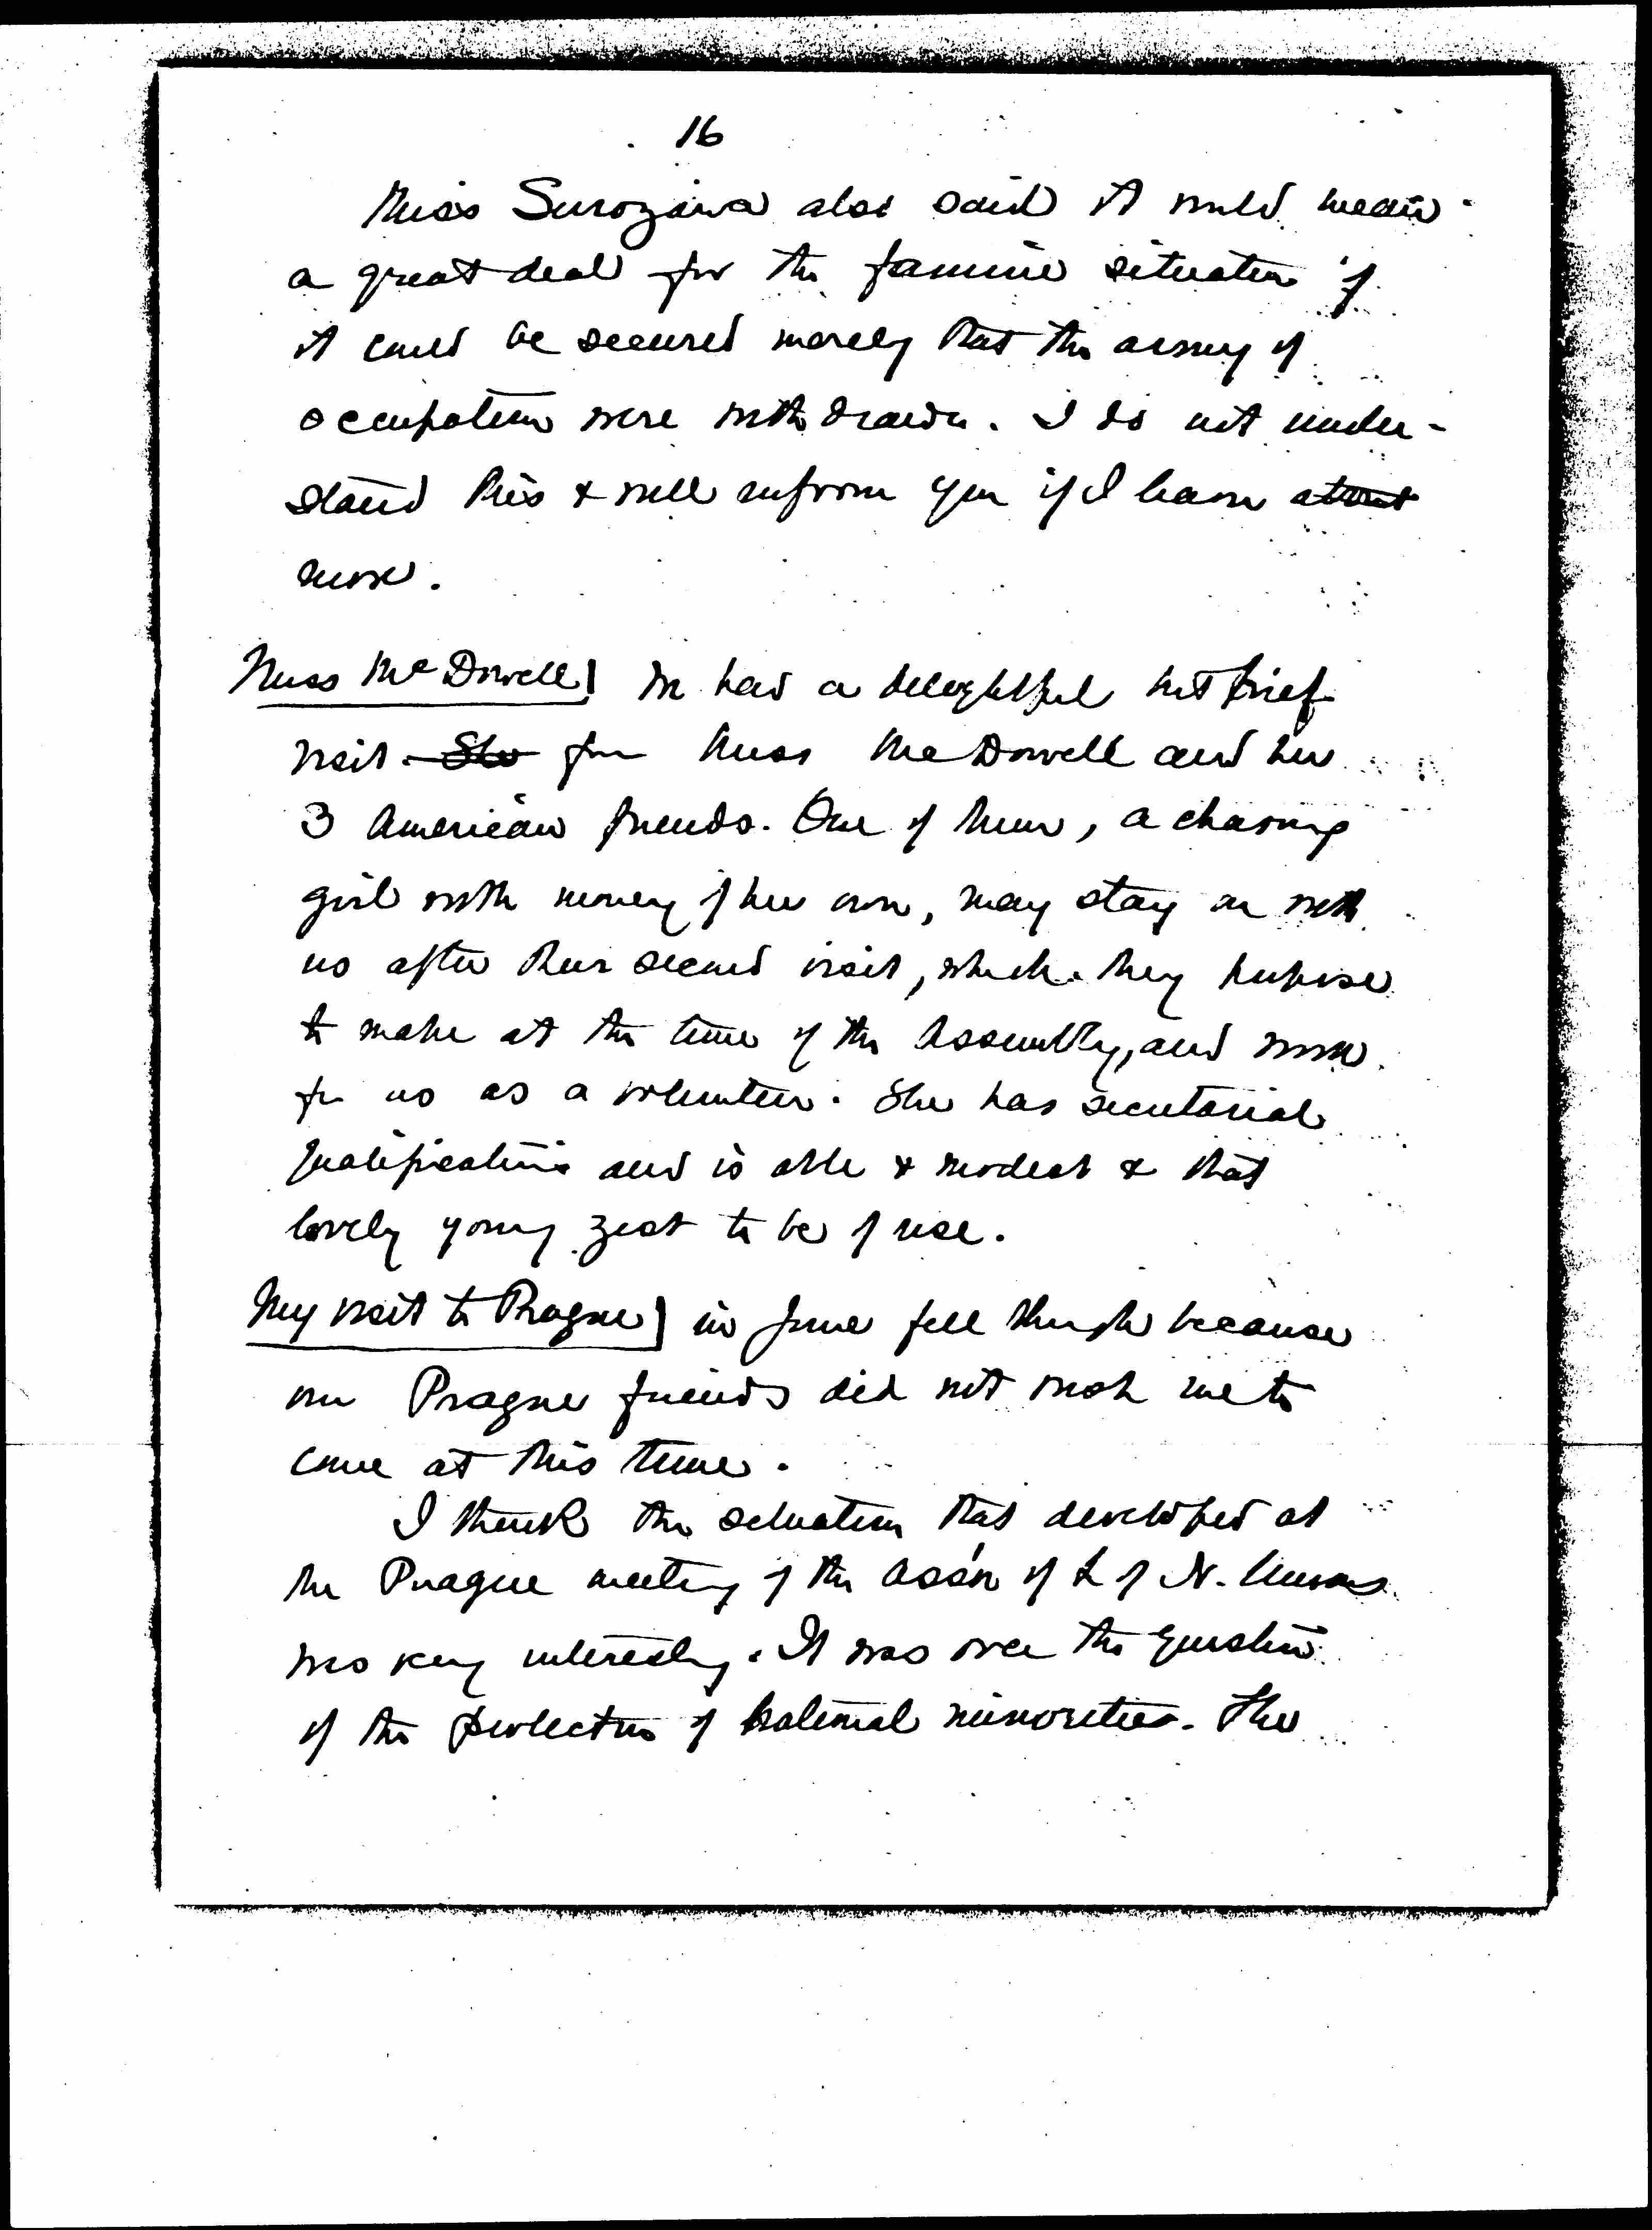 16
Miss Surozowa also said it would mean
a great deal for the famine situation if
it could be secured merely that the army of
occupation were withdrawn. I do not under-
stand this & will inform you if I learn about
more.
Miss McDowell] We had a delightful but brief
visit. She from Miss McDowell and her
3 American friends. One of them, a charming
girl with money of her own, may stay on with
us after their second visit, which they purpose
to make at the time of the Assembly, and work
for us as a volunteer. She has secretarial
qualifications and is able & modest & that
lovely young zest to be of use.
My visit to Prague] in June fell through because
our Prague friends did not wish me to
come at this time.
I think the situation that developed at
the Prague meeting of the Ass'n of L of N. Unions
was very interesting. It was over the question
of the protection of national minorities. The